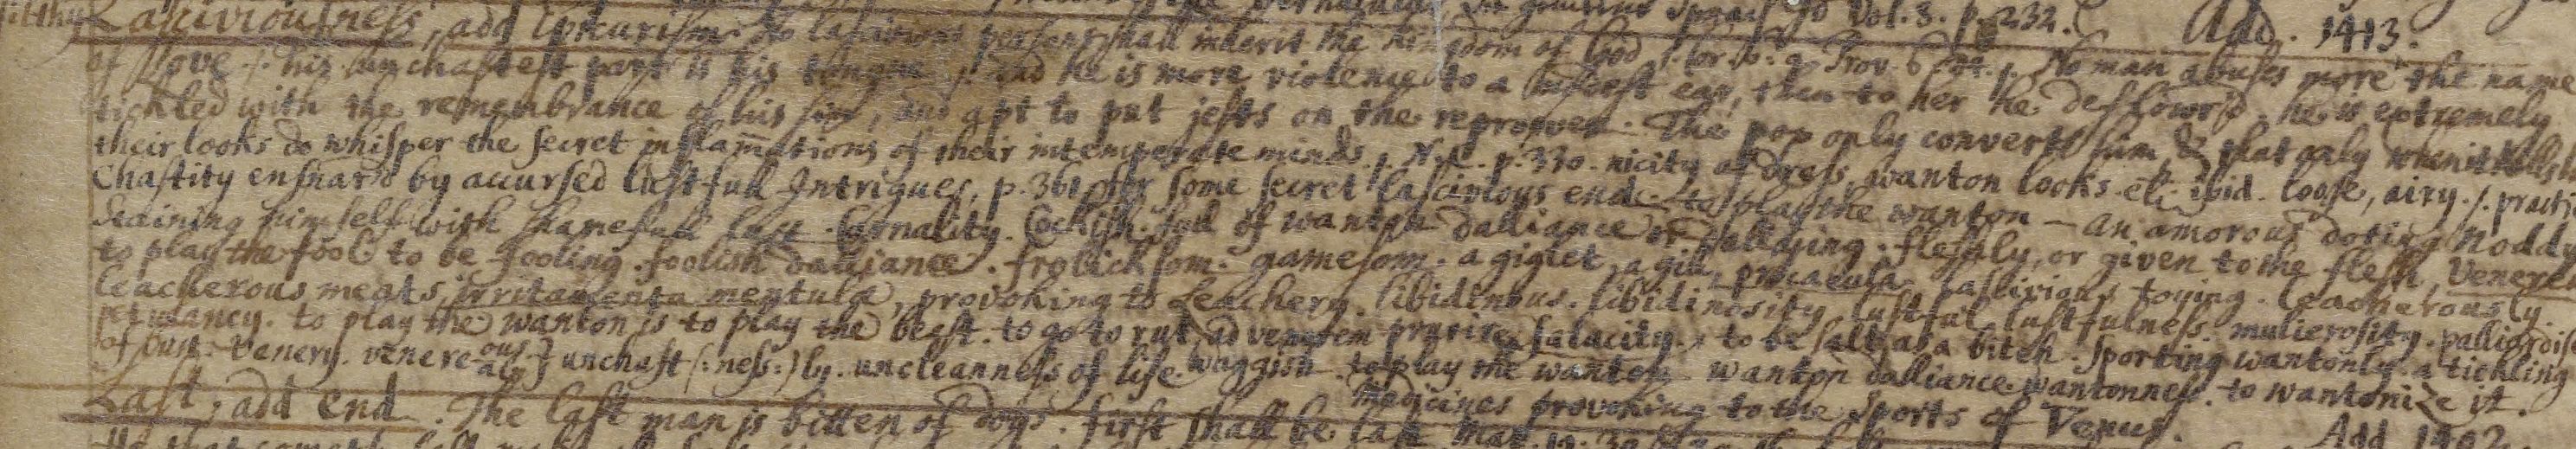 Vol. 3. p. 232. Add. 1413.
Lasciviousness, add Epicurism. No lascivious person shall inherit the kingdom of God 1. Cor. 6. 9. Prov. 6. No man abuses more the name
of Love /. his unchastest part is his tongue /. and he is more violence to a modest ear, then to her he deflowr'd. he is extremely
tickled with the remembrance of his sin, and apt to put jests on the reprover. The pox only converts him, & that only when it kills
their looks do whisper the secret inflam̄ations of their intemperate minds /. N.C. p. 330. nicity of dress, wanton looks. etc. ibid. loose, airy. /. practi
Chastity ensnar'd by accursed lustfull Intrigues, p. 361. for some secret lascivious end. to play the wanton — an amorous doting Noddy
staining himself with shamefull lust. Carnality. Cockish. full of wanton dalliance or dallying. fleshly, or given to the flesh, Venere
to play the fool to be fooling. foolish dalliance. frolicksom. gamesom. a giglet, a gill, procacula. lascivious toying. leacherously
leacherous meats, irritamenta mentulæ, provoking to Leachery. libidinous. libidinosity. lustful. lustfulness. mulierosity. palliardise
petulancy. to play the wanton is to play the beast. to go to rut, ad venerem prurire. salacity. to be salt, as a bitch. sporting wantonly. a tickling
of lust. Venery. venere ous aly } unchast (:ness:) ly. uncleanness of life. waggish. to play the wanton wanton dalliance. wantonness. to wantonize it.
Medicines provoking to the sports of Venus.
Last, add end. The last man is bitten of dogs. first shall be last Mat. 19. 30 Add 1402